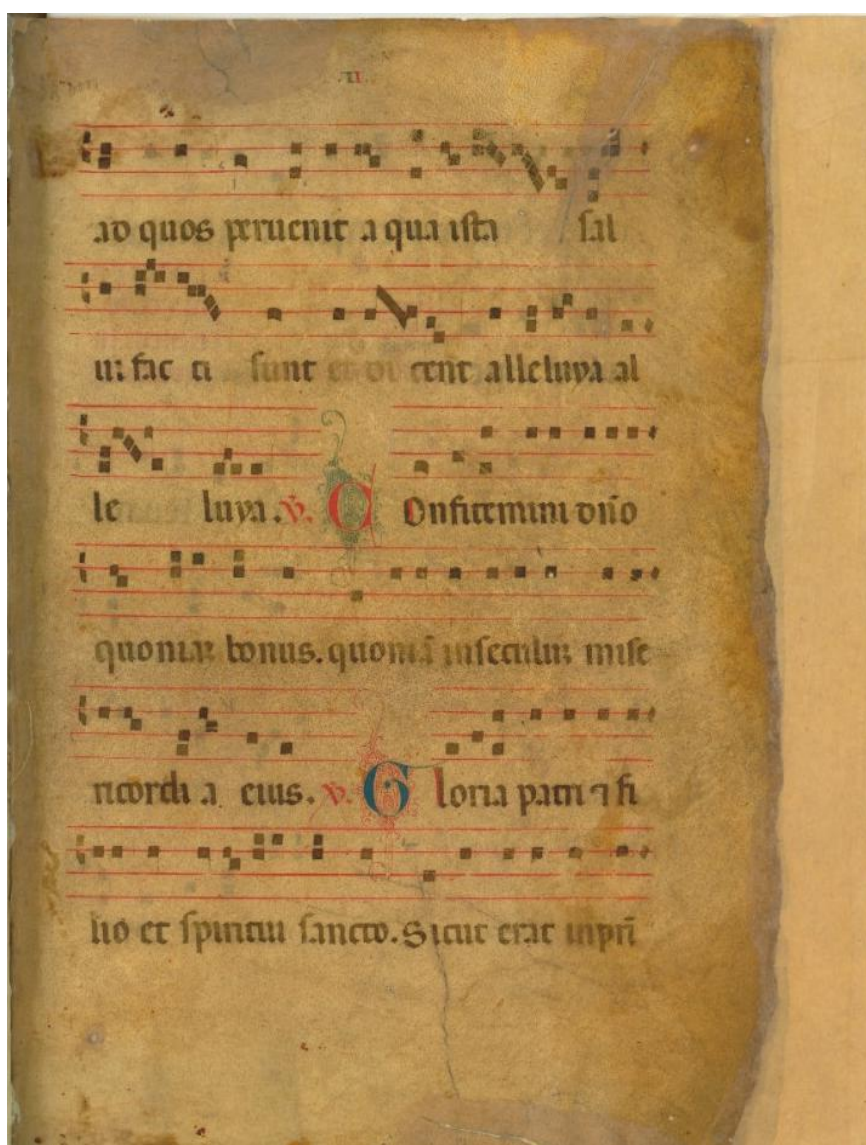 II
ad quos peruenit a qua ista sal
ui fac ti sunt et di cent alleluya al
le luya. V. C Onfitemini dño
quoniaʒ bonus. quoniã inseculuʒ mise
ricordi a eius. V. G loria patri ⁊ fi
lio et spiritui sancto. Sicut erat inpri̅